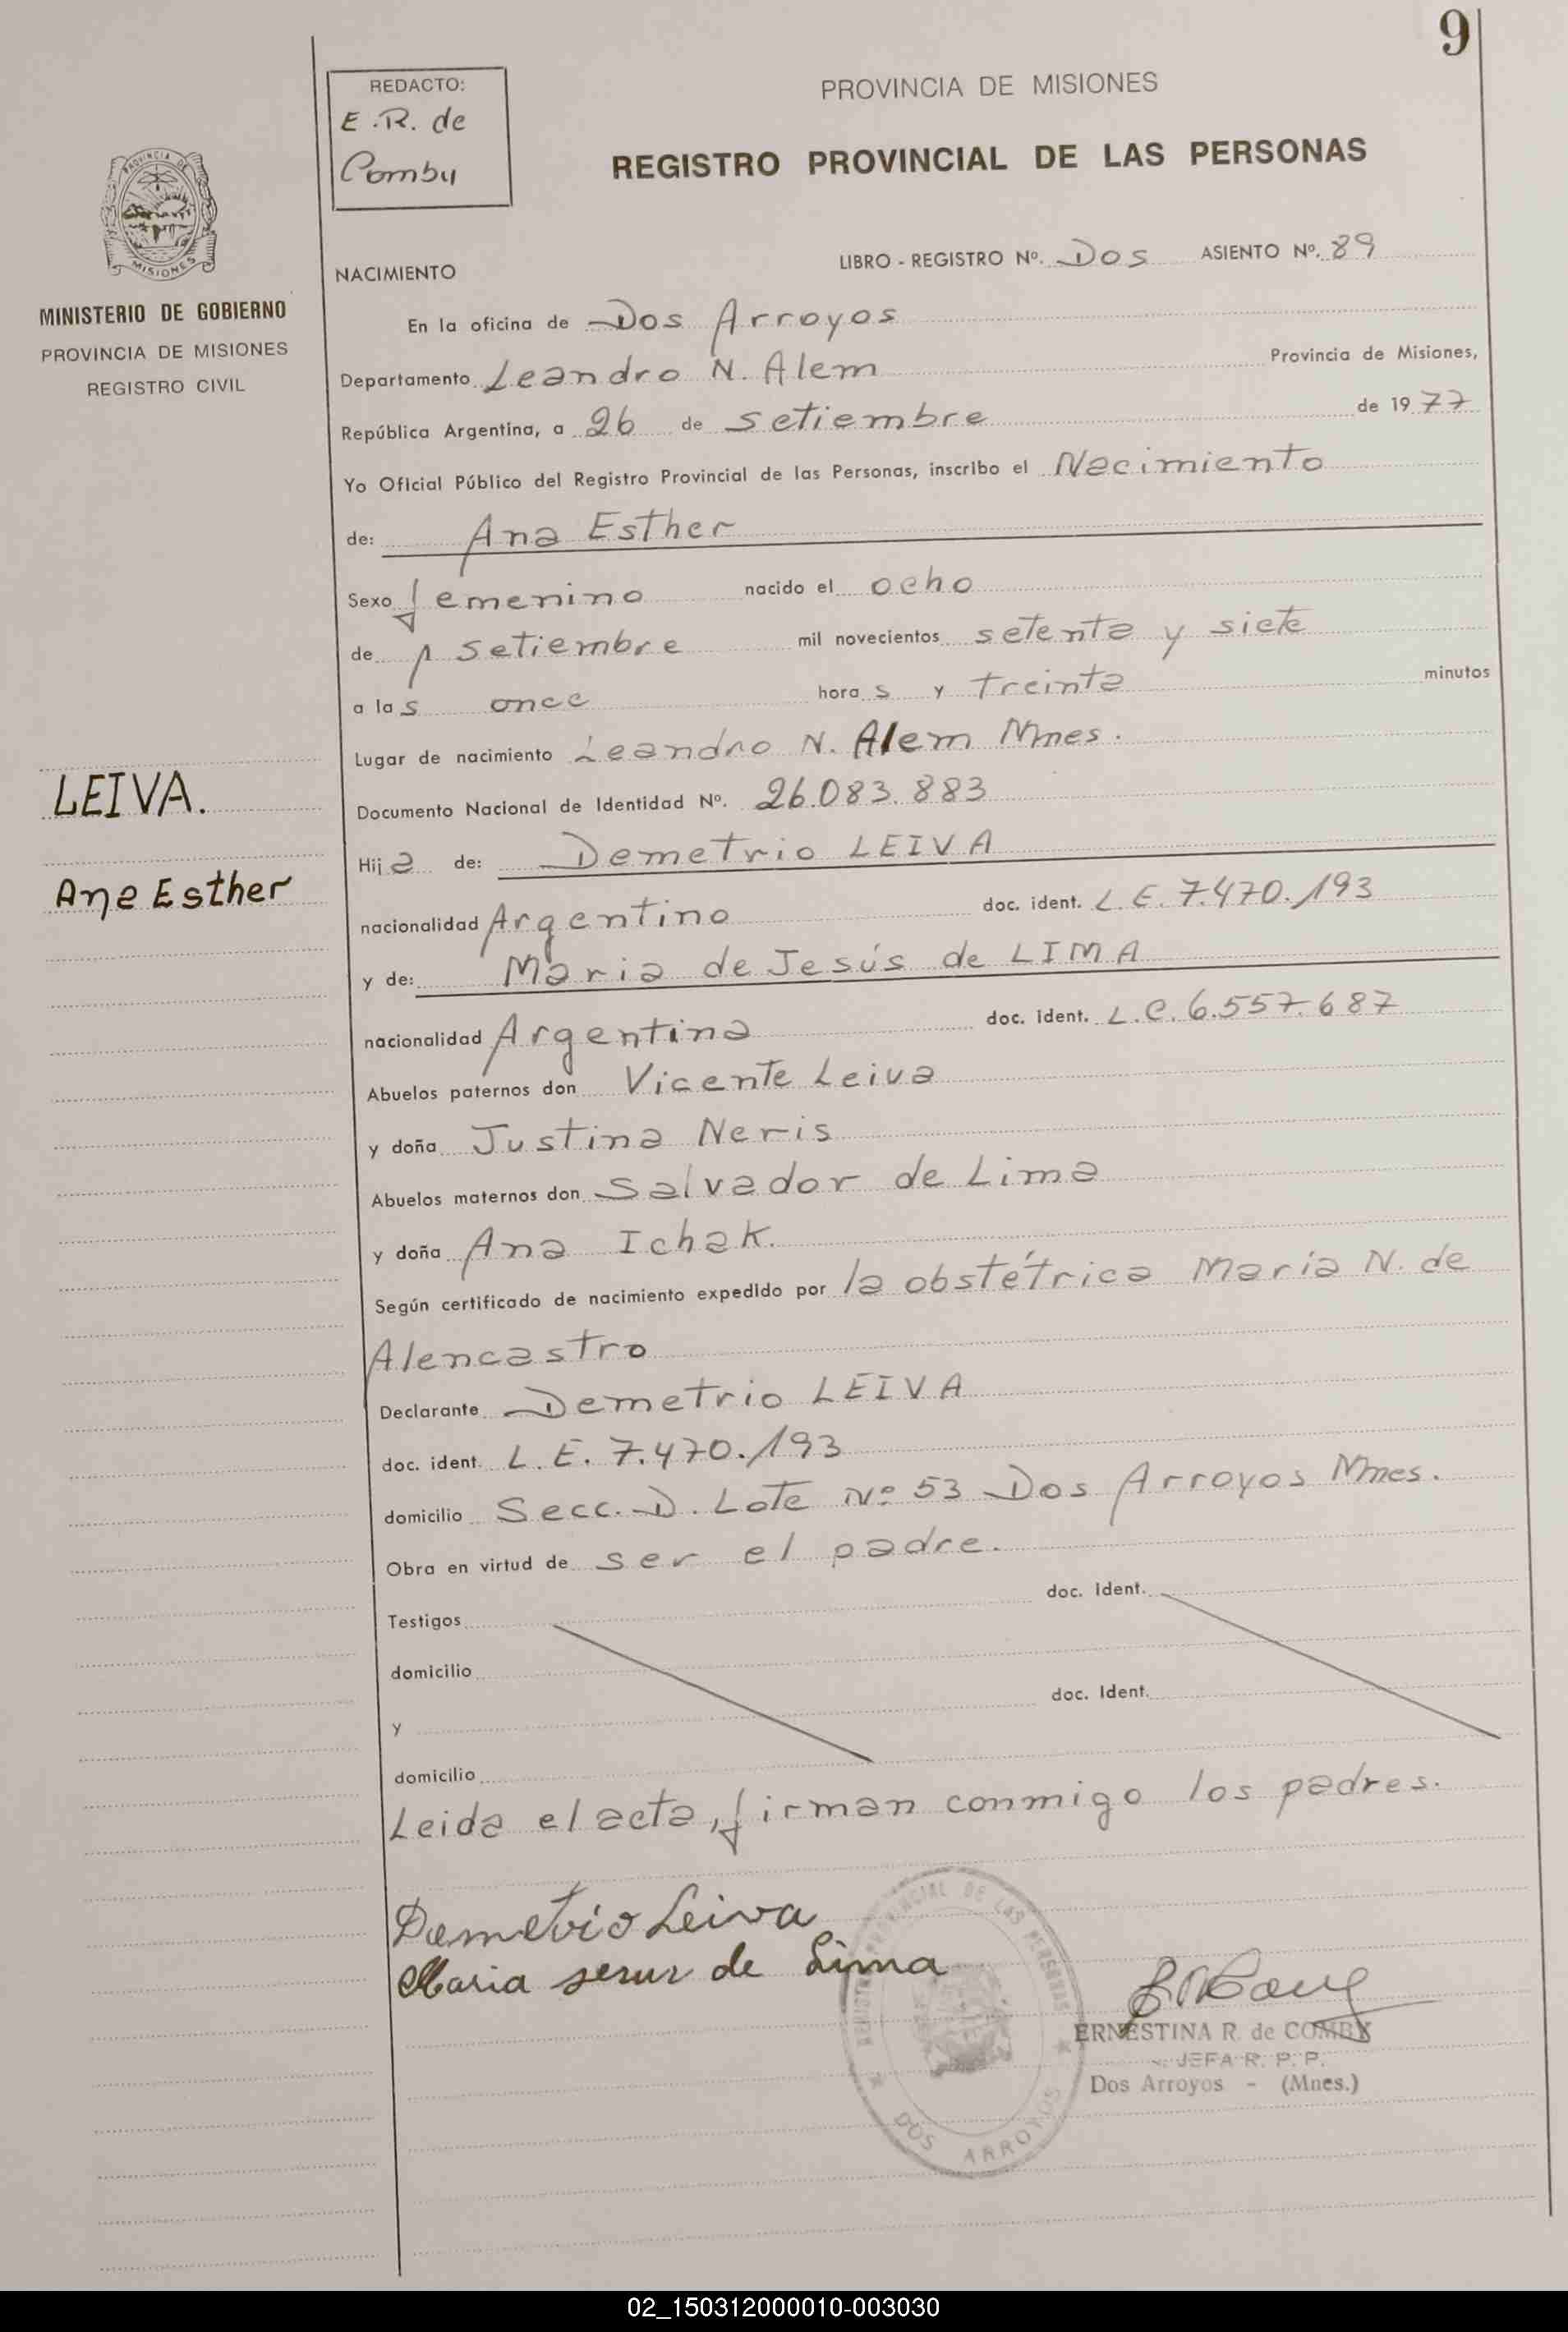 9
REDACTO:
E.R. de
Comby
PROVINCIA DE MISIONES
REGISTRO PROVINCIAL DE LAS PERSONAS
PROVINCIA DE
MISIONES
MINISTERIO DE GOBIERNO
PROVINCIA DE MISIONES
REGISTRO CIVIL
LIBRO - REGISTRO Nº. Dos ASIENTO Nº. 89
NACIMIENTO
En la oficina de Dos Arroyos
Departamento Leandro N. Alem Provincia de Misiones,
República Argentina, a 26 de Setiembre de 1977
Yo Oficial Público del Registro Provincial de las Personas, inscribo el Nacimiento
de: Ana Esther
Sexo femenino nacido el ocho
de setiembre mil novecientos setenta y siete
a las once horas y treinta minutos
Lugar de nacimiento Leandro N. Alem Mnes.
LEIVA.
Documento Nacional de Identidad Nº. 26.083.883
Hija de: Demetrio LEIVA
Ana Esther
nacionalidad Argentino doc. ident. L.E. 7.470.193
y de: Maria de Jesús de LIMA
nacionalidad Argentina doc. ident. L.C. 6.557.687
Abuelos paternos don Vicente Leiva
y doña Justina Neris
Abuelos maternos don Salvador de Lima
y doña Ana Ichak.
Según certificado de nacimiento expedido por la obstétrica María N. de
Alencastro
Declarante Demetrio LEIVA
doc. ident. L.E. 7.470.193
domicilio Secc. D. Lote Nº 53 Dos Arroyos Mnes.
Obra en virtud de ser el padre.
Testigos doc. Ident.
domicilio
y doc. Ident.
domicilio
Leida el acta, firman conmigo los padres.
Demetrio Leiva
Maria sesus de Lima
PROVINCIAL DE LAS PERSONAS
DOS ARROYOS
ERNESTINA R. de COMBY
JEFA R. P. P.
Dos Arroyos - (Mnes.)
02_150312000010-003030